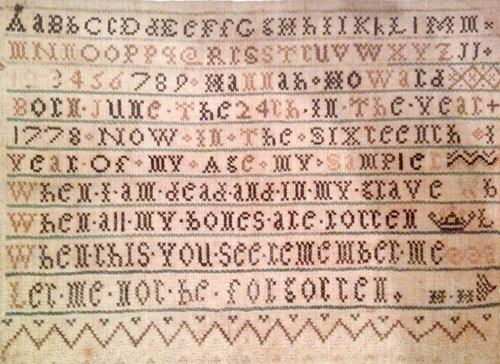 A a B b C C D d E e F f G G H h I I K k L l M m
m N n O O P P q Q R I S S T t U V W X Y Z J J
2 3 4 5 6 7 8 9 · Hannah · Howard
Born · June · The 24th · In · The · Year
1778 · Now · in · The · Sixteenth
Year · Of · my · Age · my · Sampler
When · I · am · dead and · In · my · grave
When · all · my · bones · are · rotten
When this · you · see · remember · me
Let · me · not · be · forgotten.